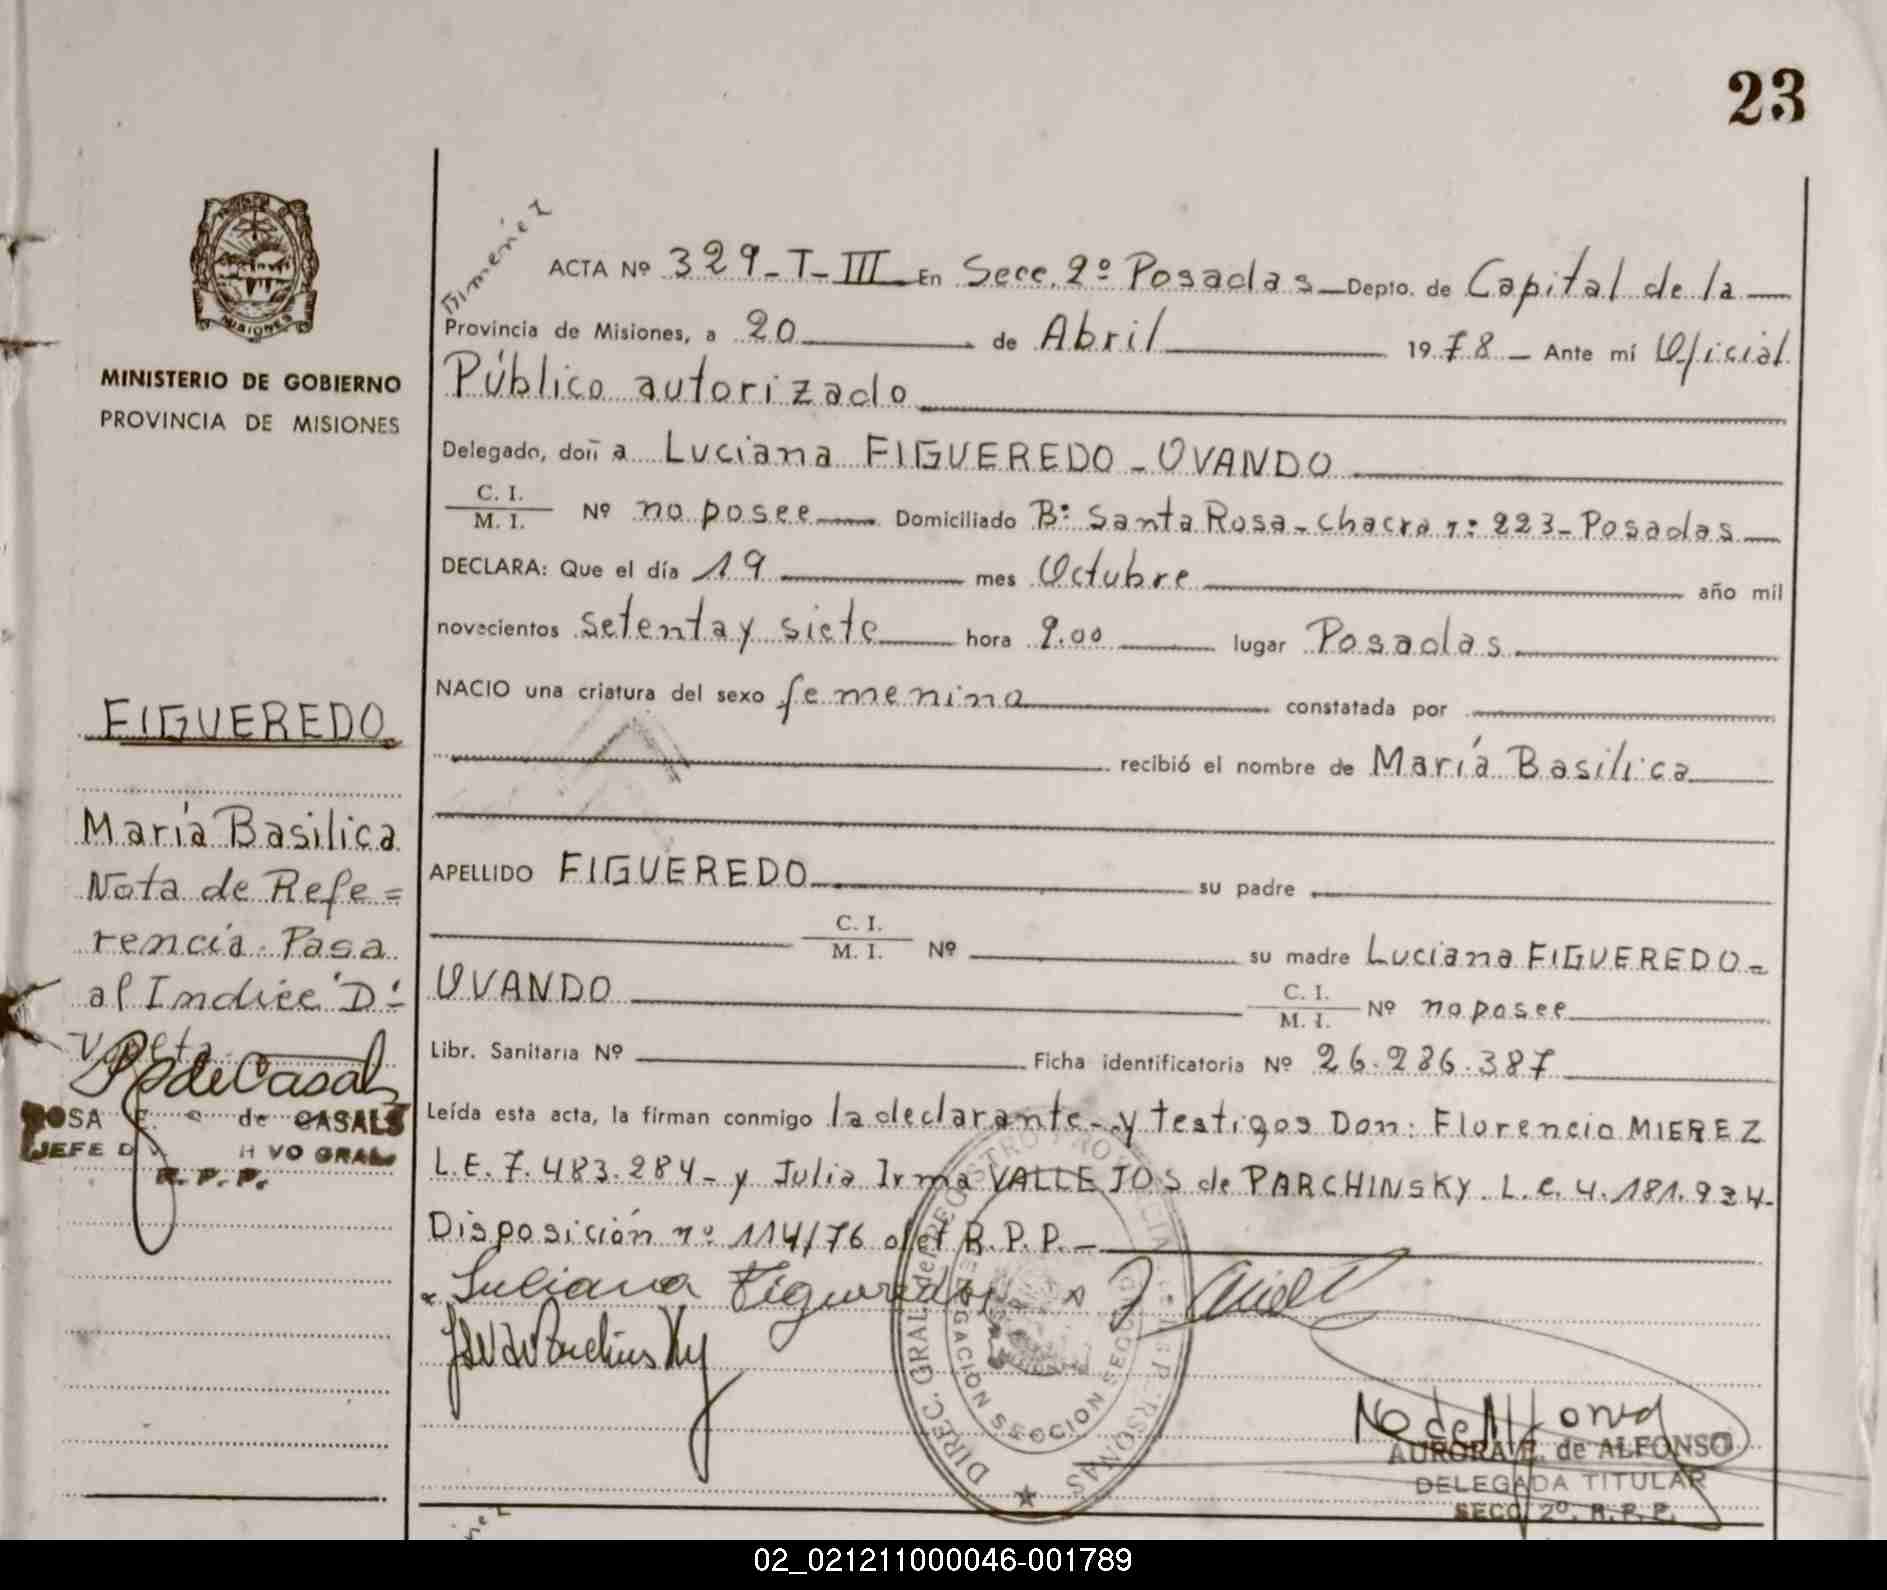 23
Gimenez
ACTA Nº 329-T-III En Secc. 2º Posadas Depto. de Capital de la
Provincia de Misiones, a 20 de Abril 1978 Ante mí Oficial
Público autorizado
Delegado, doña Luciana FIGUEREDO - OVANDO
C. I.
M. I. Nº no posee Domiciliado Bº Santa Rosa - chacra nº 223 - Posadas
DECLARA: Que el día 19 mes Octubre año mil
novecientos setenta y siete hora 9.00 lugar Posadas
NACIO una criatura del sexo femenino constatada por
recibió el nombre de María Basilica
APELLIDO FIGUEREDO su padre
C. I.
M. I. Nº su madre Luciana FIGUEREDO -
OVANDO C. I.
M. I. Nº no posee
Libr. Sanitaria Nº Ficha identificatoria Nº 26.286.387
Leída esta acta, la firman conmigo la declarante y testigos Don: Florencio MIEREZ
L.E. 7.483.284 - y Julia Irma VALLEJOS de PARCHINSKY. L.C. 4.181.924-
Disposición nº 114/76 del R.P.P.-
Luliana Figueredo
MISIONES
MINISTERIO DE GOBIERNO
PROVINCIA DE MISIONES
FIGUEREDO
María Basilica
Nota de Refe=
rencia. Pasa
al Indice "D"
de Casals
ROSA de CASALS
JEFE
R. P. P.
DIREC. GRAL. del REGISTRO PROVINCIAL PERSONAS
DELEGACION SECCION SEGUNDA
de Alfonso
AURORA E. de ALFONSO
DELEGADA TITULAR
SECC. 2º. R. P. P.
02_021211000046-001789